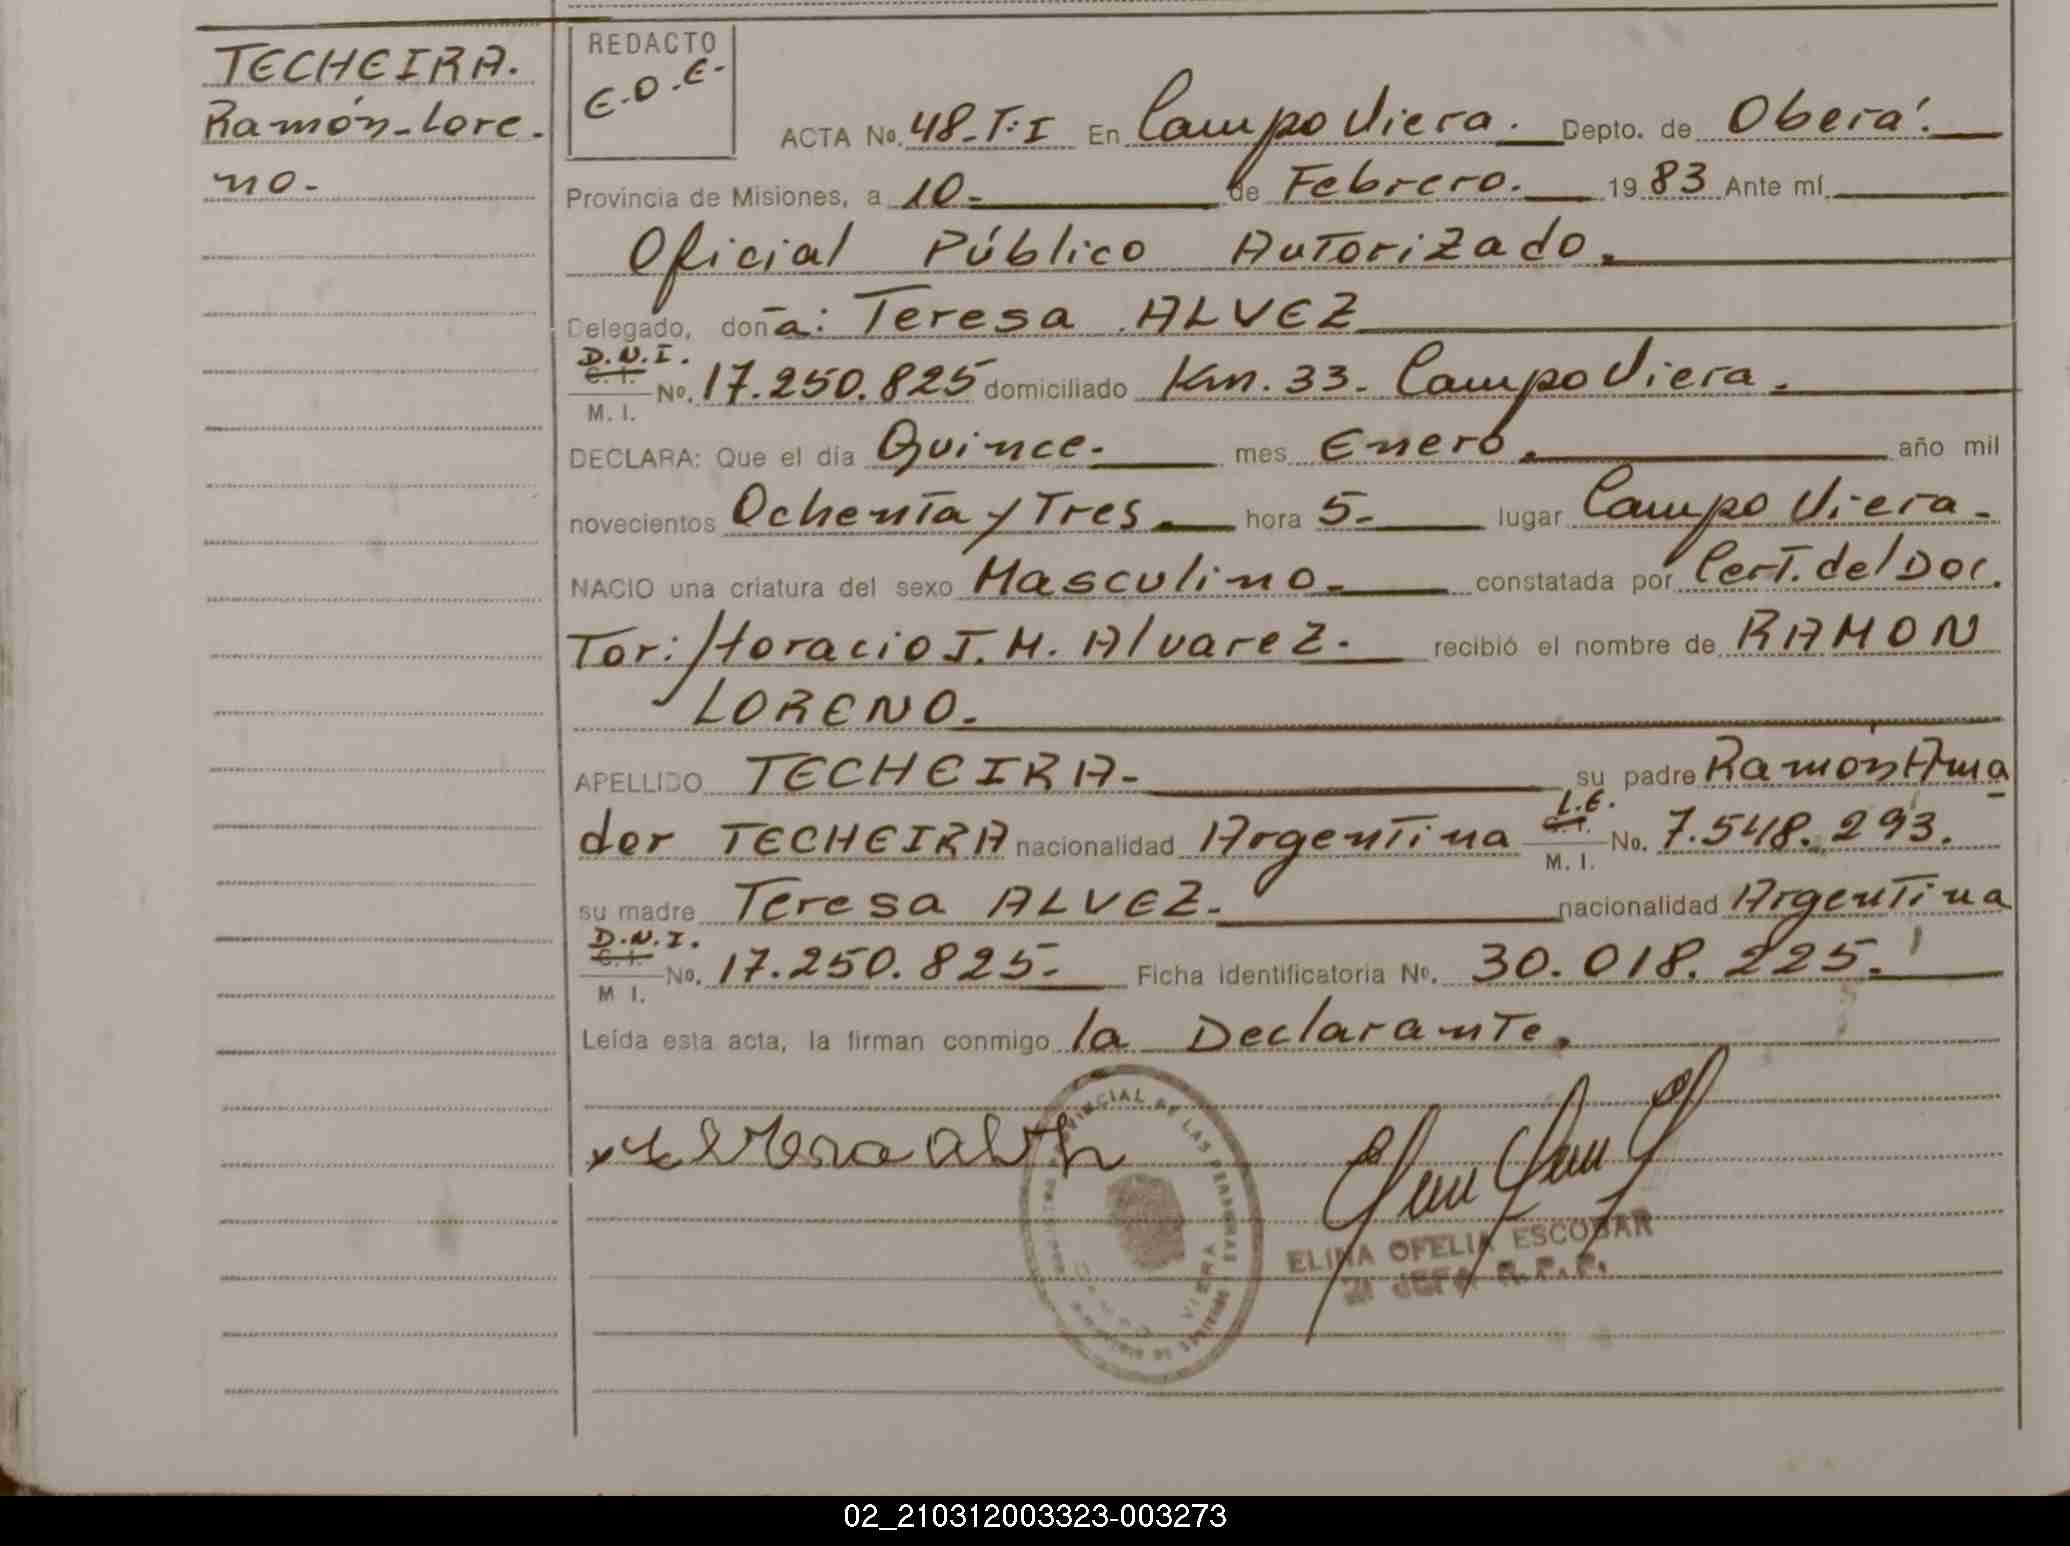 TECHEIRA.
Ramón-Lore-
no-
REDACTO
E.O.E-
ACTA No. 48-T:I En Campo Viera. Depto. de Oberá.
Provincia de Misiones, a 10- de Febrero. 19 83 Ante mí
Oficial Público Autorizado.
Delegado, doña: Teresa ALVEZ
D.N.I.
C. I.
M. I. No. 17.250.825 domiciliado Km. 33- Campo Viera.
DECLARA: Que el día Quince- mes Enero. año mil
novecientos Ochenta y Tres hora 5- lugar Campo Viera-
NACIO una criatura del sexo Masculino- constatada por Cert. del Doc.
Tor: Horacio J. M. Alvarez. recibió el nombre de RAMON
LORENO.
APELLIDO TECHEIRA- su padre Ramón Ama
L.E.
dor TECHEIRA nacionalidad Argentina C. I. No. 7.548.293.
M. I.
su madre Teresa ALVEZ- nacionalidad Argentina
D.N.I.
C. I.
M I. No. 17.250.825- Ficha identificatoria No. 30.018.225.
Leída esta acta, la firman conmigo la Declarante.
PROVINCIAL DE LAS PERSONAS
VIERA
ELINA OFELIA ESCOBAR
JEFA R.P.P.
02_210312003323-003273